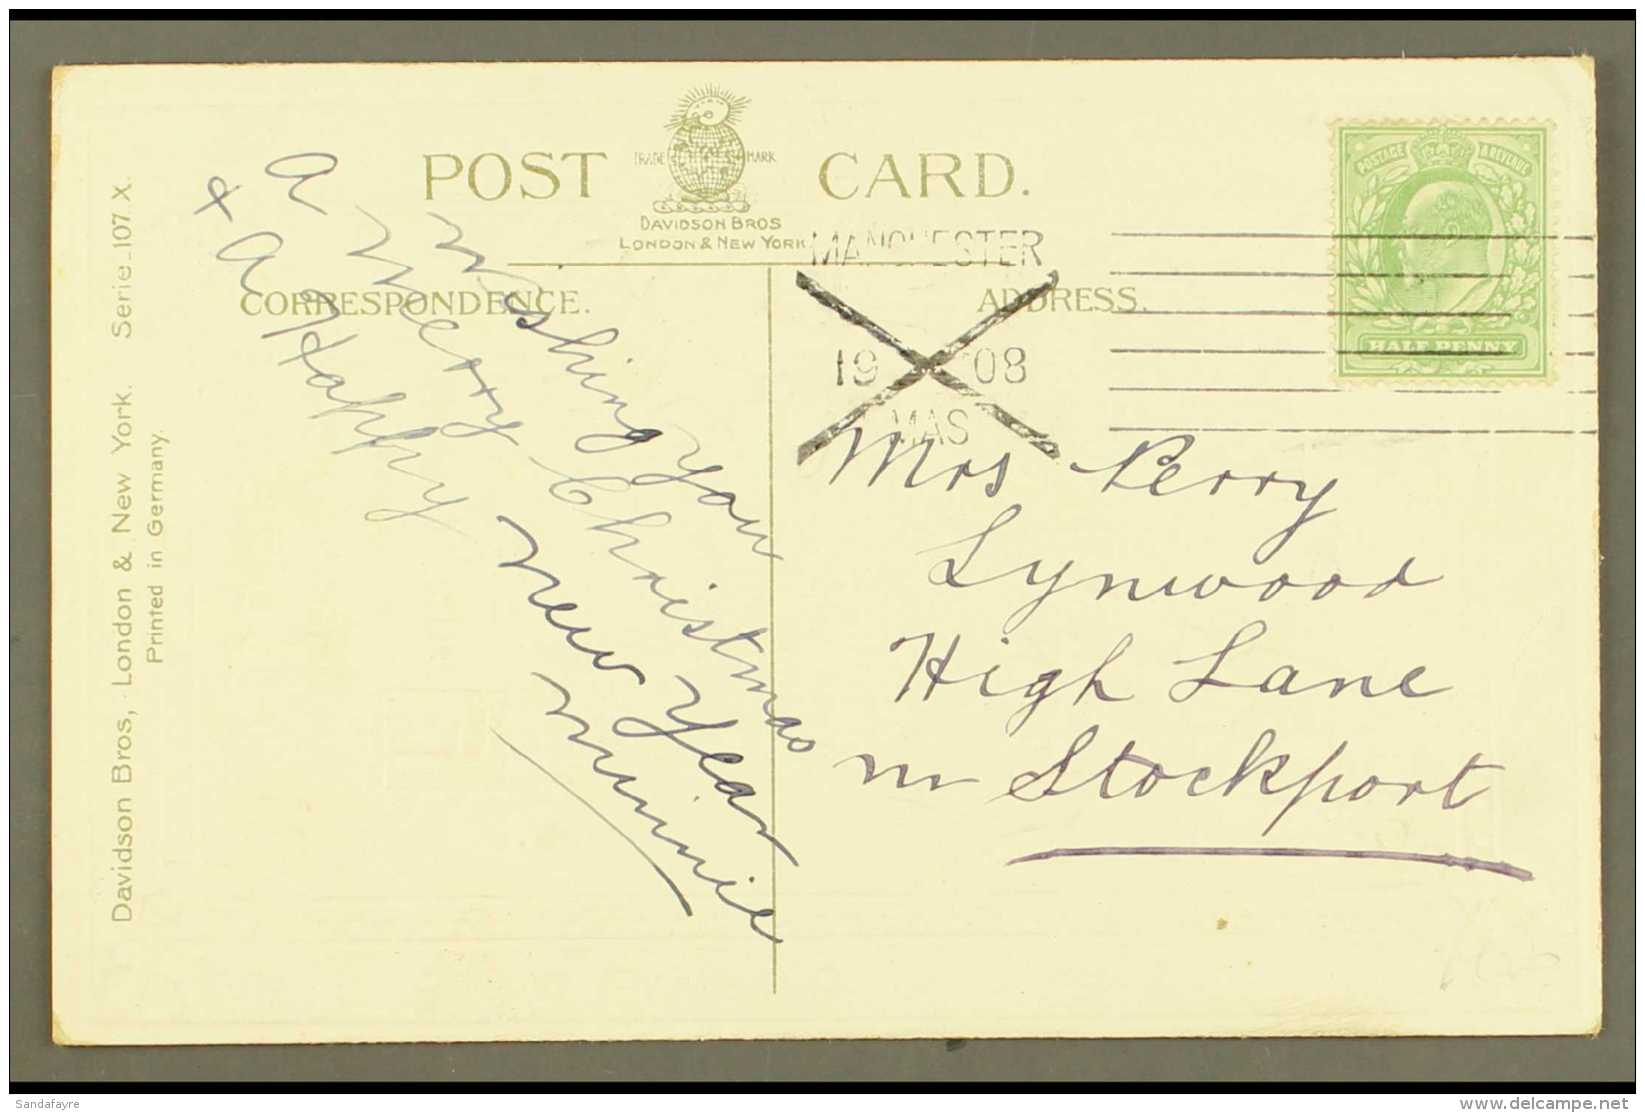 POST CARD.
TRADE MARK
DAVIDSON BROS
LONDON & NEW YORK
CORRESPONDENCE.
ADDRESS.
MANCHESTER
19 08
MAS
POSTAGE & REVENUE
HALF PENNY
Davidson Bros, London & New York. Serie 107 X.
Printed in Germany.
Wishing you
a Merry Christmas
& A Happy New Year
Minnie
Mrs Perry
Lynwood
High Lane
nr Stockport
Sandafayre
www.delcampe.net